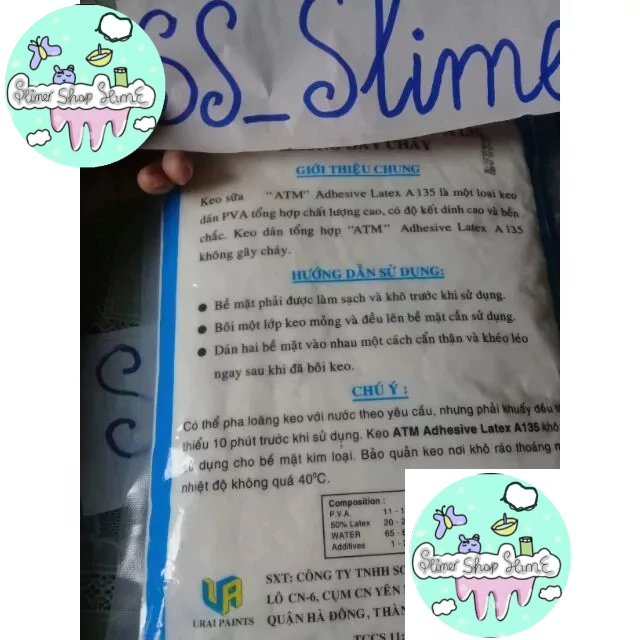 Slimer Shop Slime
SS_Slime
GÂY CHÁY
GIỚI THIỆU CHUNG
Keo sữa "ATM" Adhesive Latex A 135 là một loại keo
dán PVA tổng hợp chất lượng cao, có độ kết dính cao và bền
chắc. Keo dán tổng hợp "ATM" Adhesive Latex A 135
không gây cháy.
HƯỚNG DẪN SỬ DỤNG:
● Bề mặt phải được làm sạch và khô trước khi sử dụng.
● Bôi một lớp keo mỏng và đều lên bề mặt cần sử dụng.
● Dán hai bề mặt vào nhau một cách cẩn thận và khéo léo
ngay sau khi đã bôi keo.
CHÚ Ý :
Có thể pha loãng keo với nước theo yêu cầu, nhưng phải khuấy đều
thiểu 10 phút trước khi sử dụng. Keo ATM Adhesive Latex A135 khô
sử dụng cho bề mặt kim loại. Bảo quản keo nơi khô ráo thoáng m
nhiệt độ không quá 40°C.
Composition :
P.V.A 11 - 1
50% Latex 20 - 2
WATER 65 - 6
Additives 1 - 
SXT: CÔNG TY TNHH SƠ
LÔ CN-6, CỤM CN YÊN
QUẬN HÀ ĐÔNG, THÀN
URAI PAINTS
TCCS 11:
Slimer Shop Slime